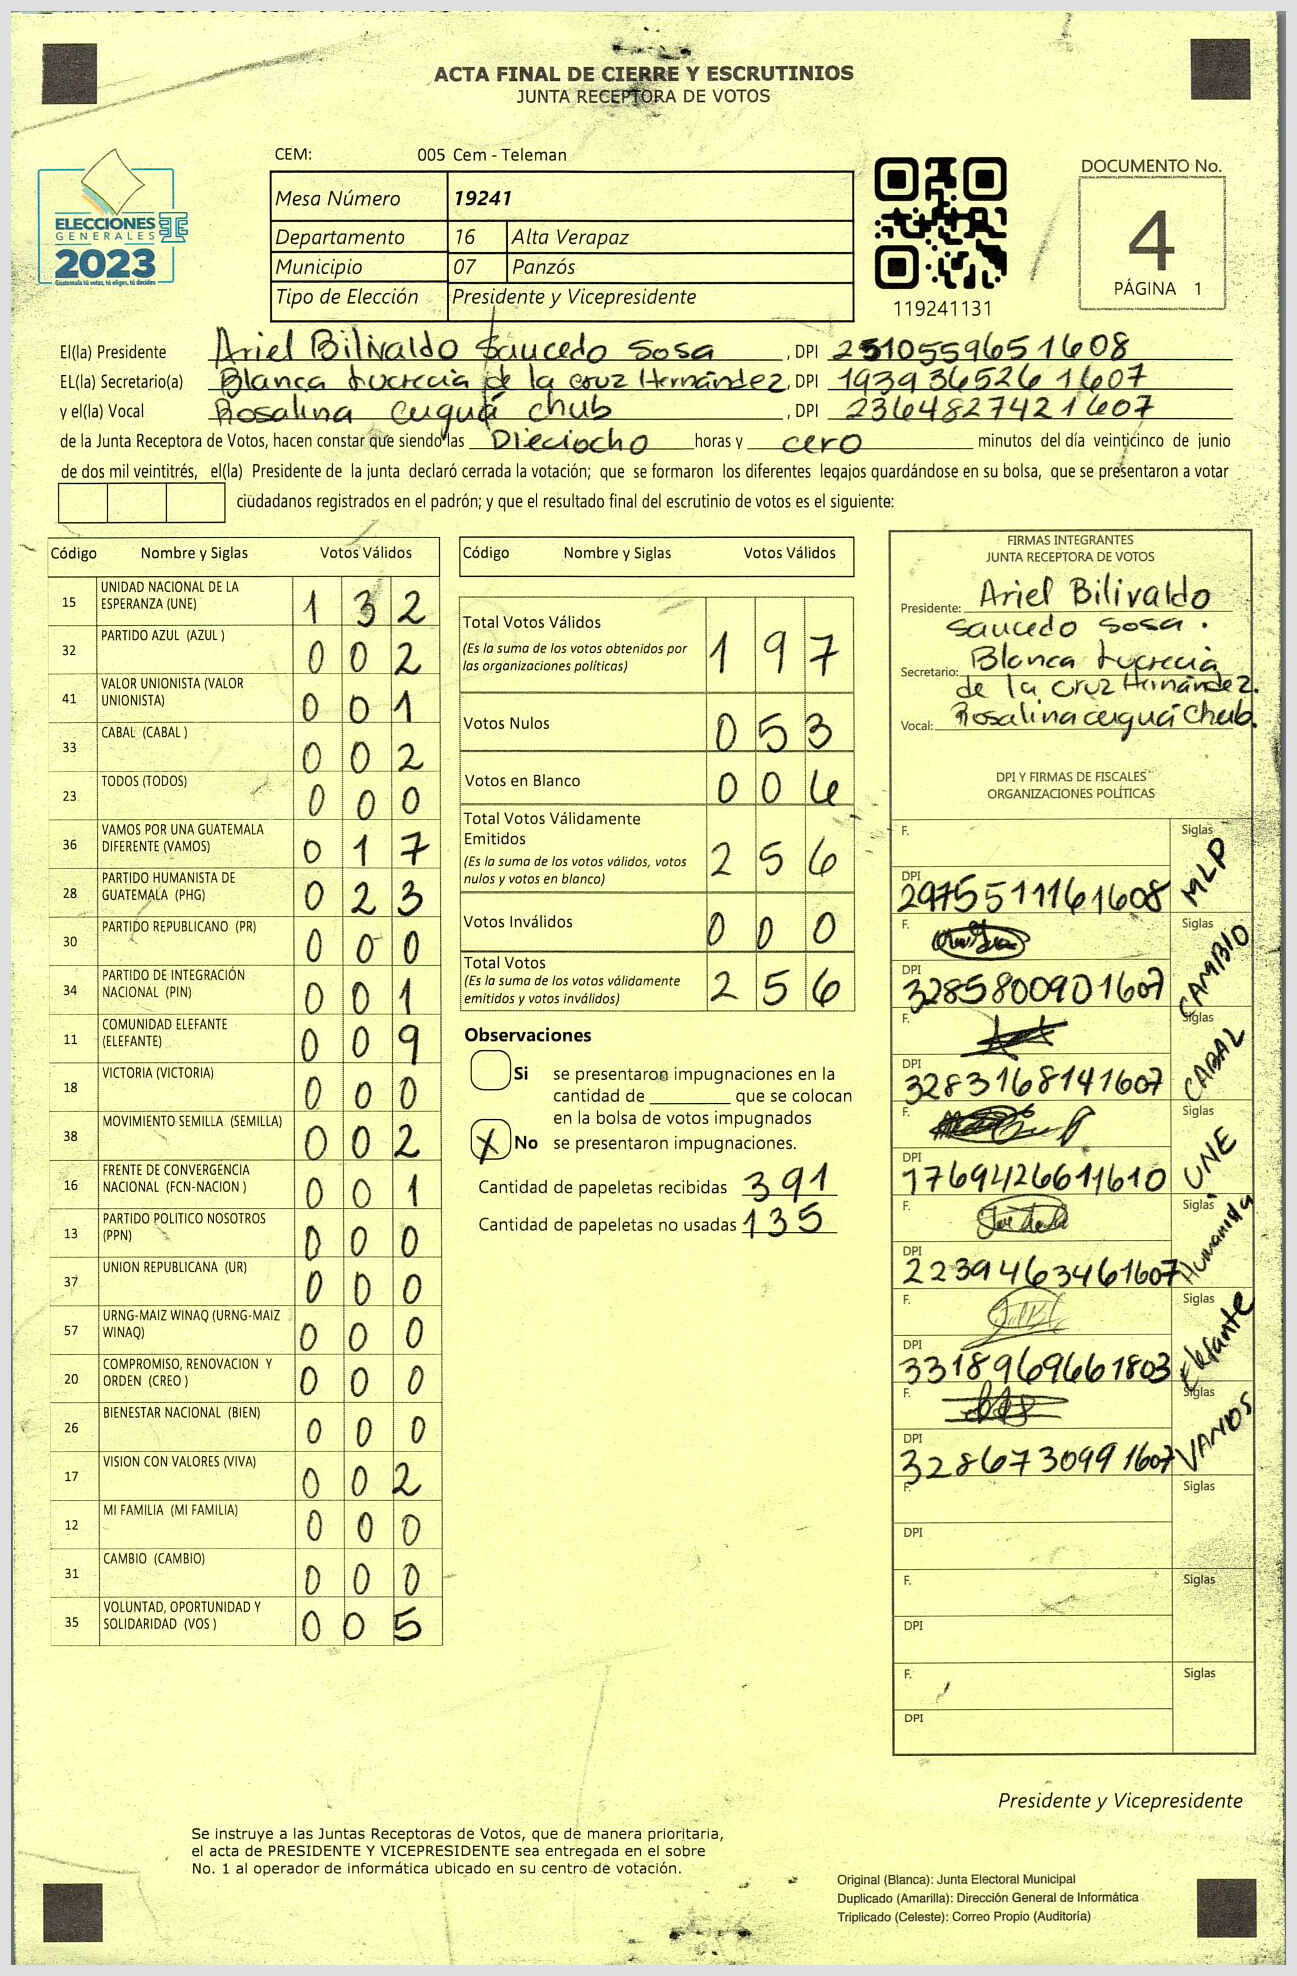 ACTA FINAL DE CIERRE Y ESCRUTINIOS
JUNTA RECEPTORA DE VOTOS
CEM: 005 Cem - Teleman
ELECCIONES
GENERALES
2023
Guatemala tú votas, tú eliges, tú decides
Mesa Número 19241
Departamento 16 Alta Verapaz
Municipio 07 Panzós
Tipo de Elección Presidente y Vicepresidente
119241131
DOCUMENTO No.
4
PÁGINA 1
El(la) Presidente Ariel Bilivaldo Saucedo Sosa, DPI 2510559651608
EL(la) Secretario(a) Blanca Lucrecia de la cruz Hernández, DPI 1939365261607
y el(la) Vocal Rosalina cuguá chub, DPI 2364827421607
de la Junta Receptora de Votos, hacen constar que siendo las Dieciocho horas y cero minutos del día veinticinco de junio
de dos mil veintitrés, el(la) Presidente de la junta declaró cerrada la votación; que se formaron los diferentes legajos quardándose en su bolsa, que se presentaron a votar
ciudadanos registrados en el padrón; y que el resultado final del escrutinio de votos es el siguiente:
Código Nombre y Siglas Votos Válidos
15 UNIDAD NACIONAL DE LA ESPERANZA (UNE) 1 3 2
32 PARTIDO AZUL (AZUL ) 0 0 2
41 VALOR UNIONISTA (VALOR UNIONISTA) 0 0 1
33 CABAL (CABAL ) 0 0 2
23 TODOS (TODOS) 0 0 0
36 VAMOS POR UNA GUATEMALA DIFERENTE (VAMOS) 0 1 7
28 PARTIDO HUMANISTA DE GUATEMALA (PHG) 0 2 3
30 PARTIDO REPUBLICANO (PR) 0 0 0
34 PARTIDO DE INTEGRACIÓN NACIONAL (PIN) 0 0 1
11 COMUNIDAD ELEFANTE (ELEFANTE) 0 0 9
18 VICTORIA (VICTORIA) 0 0 0
38 MOVIMIENTO SEMILLA (SEMILLA) 0 0 2
16 FRENTE DE CONVERGENCIA NACIONAL (FCN-NACION ) 0 0 1
13 PARTIDO POLITICO NOSOTROS (PPN) 0 0 0
37 UNION REPUBLICANA (UR) 0 0 0
57 URNG-MAIZ WINAQ (URNG-MAIZ WINAQ) 0 0 0
20 COMPROMISO, RENOVACION Y ORDEN (CREO ) 0 0 0
26 BIENESTAR NACIONAL (BIEN) 0 0 0
17 VISION CON VALORES (VIVA) 0 0 2
12 MI FAMILIA (MI FAMILIA) 0 0 0
31 CAMBIO (CAMBIO) 0 0 0
35 VOLUNTAD, OPORTUNIDAD Y SOLIDARIDAD (VOS ) 0 0 5
Código Nombre y Siglas Votos Válidos
Total Votos Válidos 1 9 7
(Es la suma de los votos obtenidos por
las organizaciones políticas)
Votos Nulos 0 5 3
Votos en Blanco 0 0 6
Total Votos Válidamente
Emitidos 2 5 6
(Es la suma de los votos válidos, votos
nulos y votos en blanco)
Votos Inválidos 0 0 0
Total Votos 2 5 6
(Es la suma de los votos válidamente
emitidos y votos inválidos)
Observaciones
Si se presentaron impugnaciones en la
cantidad de ________ que se colocan
en la bolsa de votos impugnados
X No se presentaron impugnaciones.
Cantidad de papeletas recibidas 391
Cantidad de papeletas no usadas 135
FIRMAS INTEGRANTES
JUNTA RECEPTORA DE VOTOS
Presidente: Ariel Bilivaldo
Saucedo Sosa.
Secretario: Blanca Lucrecia
de la cruz Hernández.
Vocal: Rosalina cuguá Chub.
DPI Y FIRMAS DE FISCALES
ORGANIZACIONES POLÍTICAS
F. Siglas MLP
DPI 2975511161608
F. Siglas CAMBIO
DPI 3285800901607
F. Siglas CABAL
DPI 3283168141607
F. Siglas UNE
DPI 1769426611610
F. Siglas Humanida
DPI 2239463461607
F. Siglas Elefante
DPI 3318969661803
F. Siglas VAMOS
DPI 3286730991607
F. Siglas
DPI
F. Siglas
DPI
F. Siglas
DPI
Presidente y Vicepresidente
Se instruye a las Juntas Receptoras de Votos, que de manera prioritaria,
el acta de PRESIDENTE Y VICEPRESIDENTE sea entregada en el sobre
No. 1 al operador de informática ubicado en su centro de votación.
Original (Blanca): Junta Electoral Municipal
Duplicado (Amarilla): Dirección General de Informática
Triplicado (Celeste): Correo Propio (Auditoría)